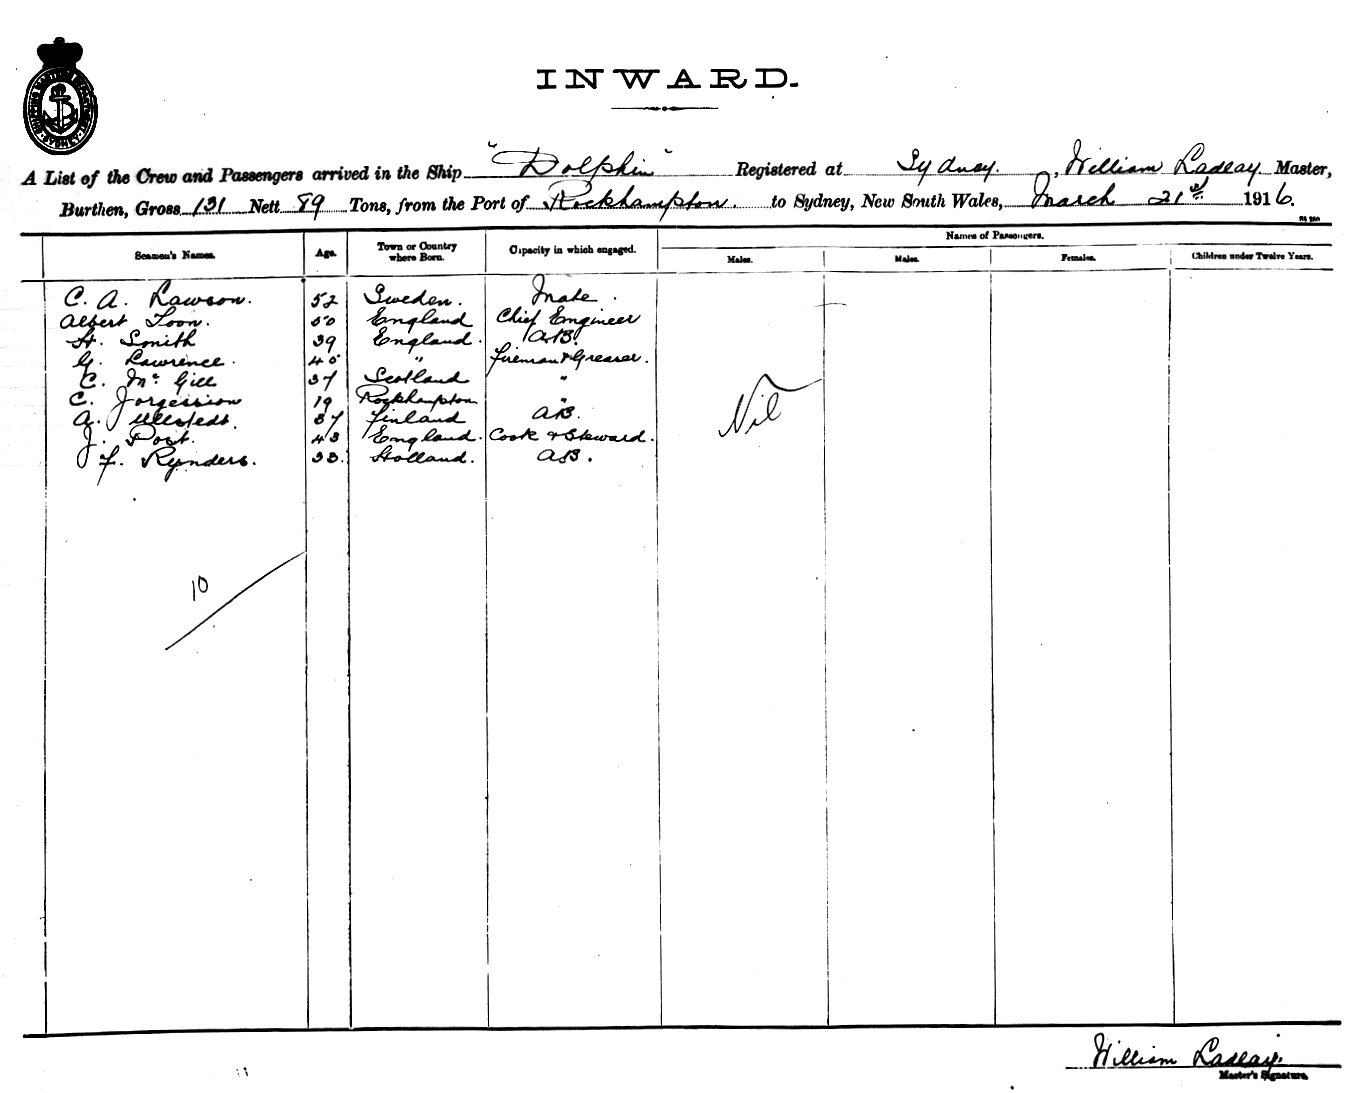 INWARD.
A List of the Crew and Passengers arrived in the Ship "Dolphin" Registered at Sydney. , William Ladlay Master,
Burthen, Gross 131 Nett 89 Tons, from the Port of Rockhampton. to Sydney, New South Wales, March 21st 1916.
Names of Passengers.
Seamen's Names. Age. Town or Country where Born. Capacity in which engaged. Males. Males. Females. Children under Twelve Years.
C. A. Lawson. 52 Sweden. Mate.
Albert Toon. 50 England Chief Engineer
H. Smith 39 England. AB.
G. Lawrence. 45 " Fireman & Greaser.
C. McGill 37 Scotland "
C. Jorgession 19 Rockhampton "
A. Ullstedt. 37 Finland AB.
J. Post. 43 England. Cook & Steward.
F. Rynders. 33. Holland. AB.
Nil
10
William Ladlay.
Master's Signature.